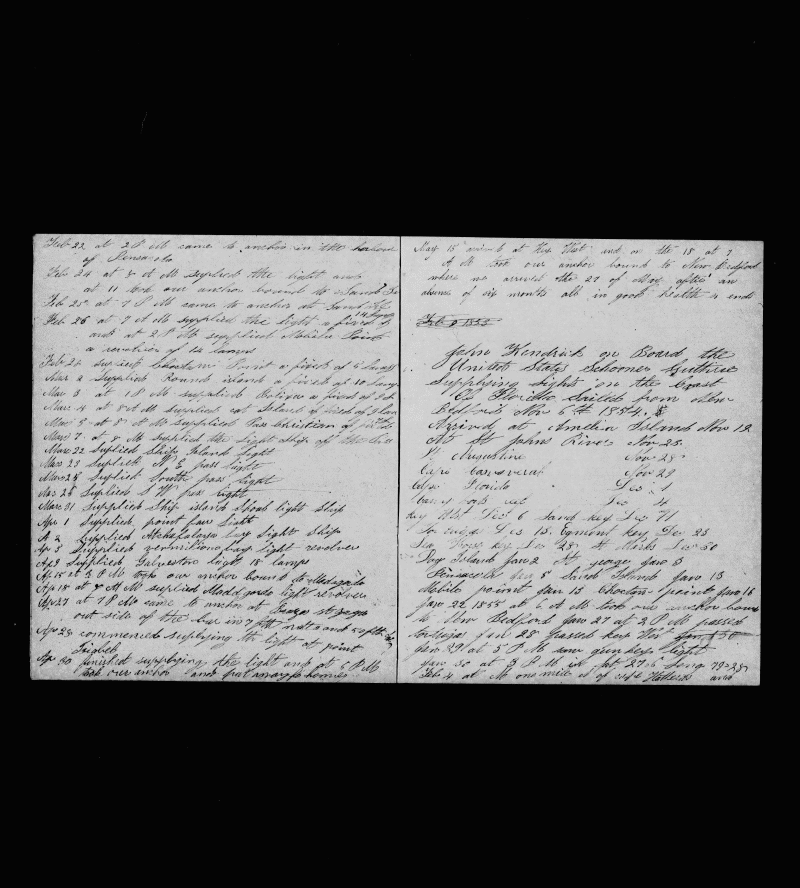 Feb 22 at 2 P M came to anchor in the harbour
of Pensacola
Feb 24 at 8 A M suplied the light and
at 11 took our anchor bound to Sand
Feb 25 at 7 P M came to anchor at Sand
Feb 26 at 9 A M supplied the Light a fixed of
14 lamps
and at 2 P M supplied Mobile Point
a revolver of 14 lamps
Feb Choctaw Point a fixed of 5 lamps
Mar 2 Supplied Round island a fixed of 10 lamps
Mar 3 at 1 P M supplied a fixed of
Marc 4 at 8 A M supplied cat Island a fixed of 9
Marc 5 at 8 A M supplied Pass Christian a fixed of
Marc 7 at 8 M supplied the Light Ship off the
Marc 22 Suplied Ship Island Light
Mar 23 Suplied N E pass light
Mar 25 Suplied South pass Light
Mar 28 Suplied S W pas light
Marc 31 Supplied Ship island Shoal light Ship
Apr 1 Supplied point faur Light
A 2 Supplied Atchafalaya bay Light Ship
Ap 3 Supplied vermilionbay light revolver
Ap 9 Supplied Galveston light 18 lamps
Ap 15 at 3 P M took our anchor bound to Matagorda
Ap 18 at M suplied Madd gorda light revolver
Ap 27 at 7 P M came to anchor at
out side of the bar in 7 fth
Apr 28 commenced supplying the light at point
Isabell
Ap 30 finished supplying the light and at 6 P M
took our anchor and put away homeward
May 15 at Key West and on the 18 at 7
A M took our anchor bound to New Bedford
where we arrived the 27 of after an
absence of six months all in good health
Feb 9 1855
John Kendrick on Board the
United States Schooner Guthrie
Supplying Lights on the Coast
Of Florida Sailed from New
Bedford Nov 6th 1854.
Arrived at Amelia Island Nov 19
At St Johns River Nov 25
St Augustine Nov 28
Cape Canaveral Nov 29
Cape Florida Dec 1
Carys foot reef Dec 4
Key West Dec 6 Sand Key Dec 11
Dec 15. Egmont Key De 23
Sea Horse Key Dec 28 St Marks Dec 30
Dog Island Jan 2 St george Jan 5
Pensacola Jan 8 Sand Island Jan 13
Mobile point Jan 13 Choctaw point Jan 16
Jan 22 1855 at 6 A M took our anchor bound
to New Bedford Jan 27 at 2 P M passed
tortugas Jan 28 passed Key West Jan 30
Jan 29 at 5 P M saw gun key light
Jan 30 at 3 P M in lat 27 " 6 Long 79 " 28
Feb 4 at M one mile E of cape Hatteras and